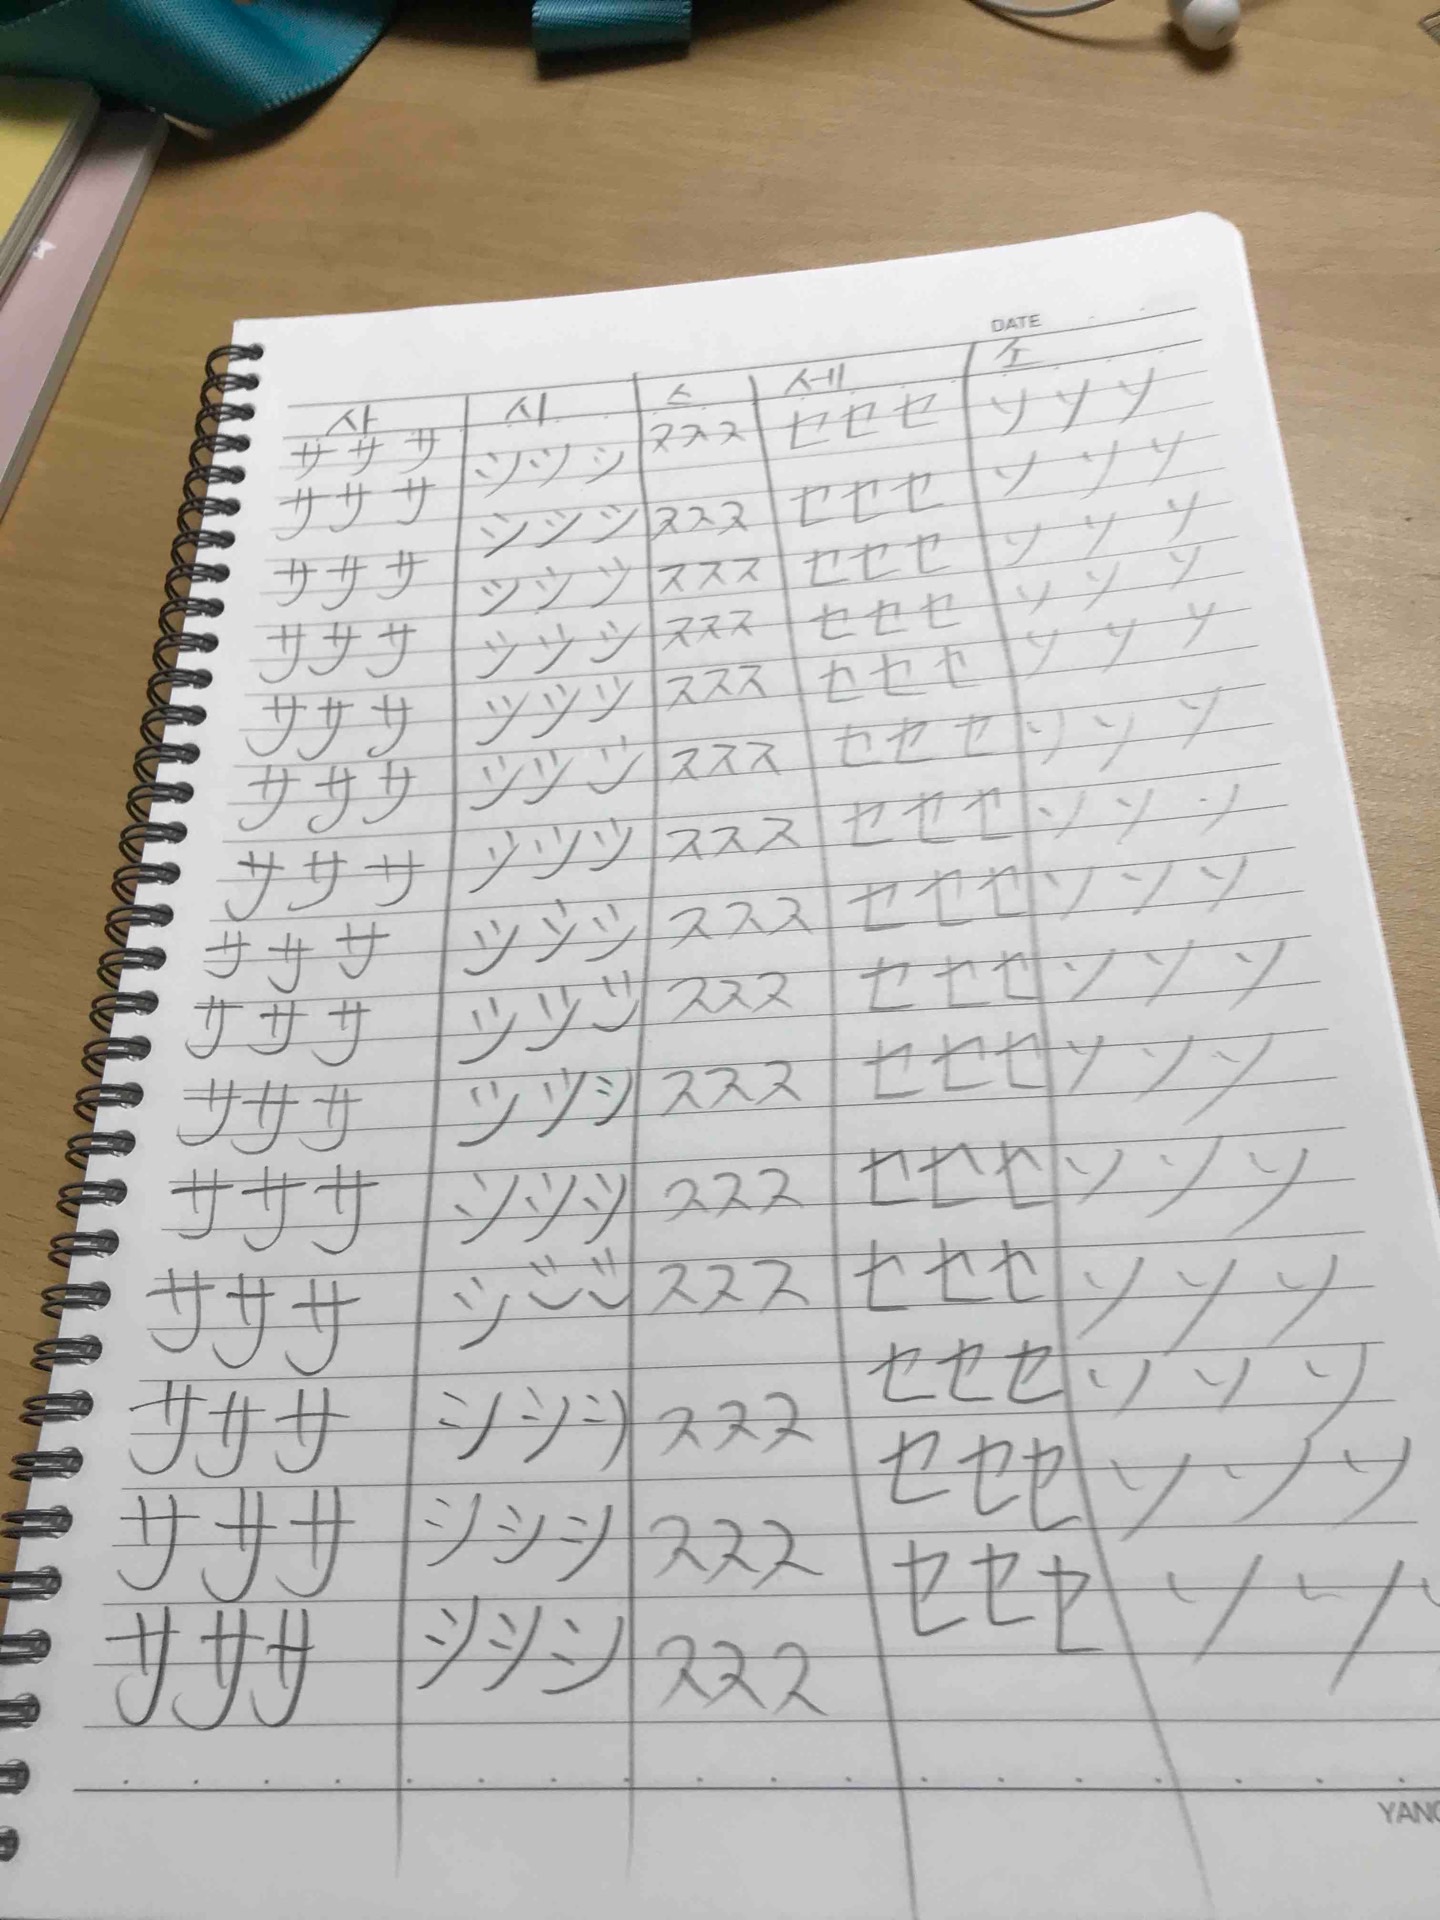 DATE
사 시 스 세 소
サササ シシシ ススス セセセ ソソソ
サササ シシシ ススス セセセ ソソソ
サササ シシシ ススス セセセ ソソソ
サササ シシシ ススス セセセ ソソソ
サササ シシシ ススス セセセ ソソソ
サササ シシシ ススス セセセ ソソソ
サササ シシシ ススス セセセ ソソソ
サササ シシシ ススス セセセ ソソソ
サササ シシシ ススス セセセ ソソソ
サササ シシシ ススス セセセ ソソソ
サササ シシシ ススス セセセ ソソソ
サササ シシシ ススス セセセ ソソソ
サササ シシシ ススス セセセ ソソソ
サササ シシシ ススス セセセ ソソソ
サササ シシシ ススス セセセ ソソ
YANG